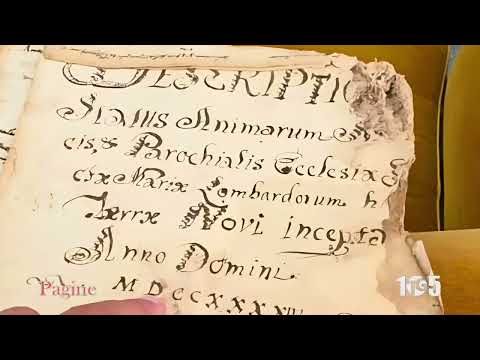 DESCRIPTIO
Status Animarum
cis, & Parochialis Ecclesiæ
ctæ Mariæ Lombardorum h
Terræ Novi incepta
Anno Domini
Pagine